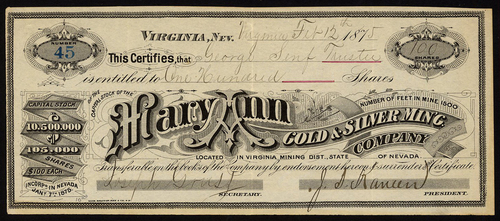 NUMBER
45
VIRGINIA, NEV. Virginia Feb 12th 1875
100
SHARES
This Certifies, that George Senf Trustee
is entitled to One Hundred Shares
CAPITAL STOCK
$
10.500.000
105.000
SHARES
$100 EACH
INCORP'D IN NEVADA
JANY 1875
IN THE CAPITAL STOCK OF THE
Mary Ann
NUMBER OF FEET IN MINE 1500
GOLD & SILVER M'NG
COMPANY
LOCATED IN VIRGINIA MINING DIST., STATE OF NEVADA
Transferable on the books of the Company by endorsement hereon & surrender of Certificate
Joseph
SECRETARY.
PRESIDENT.